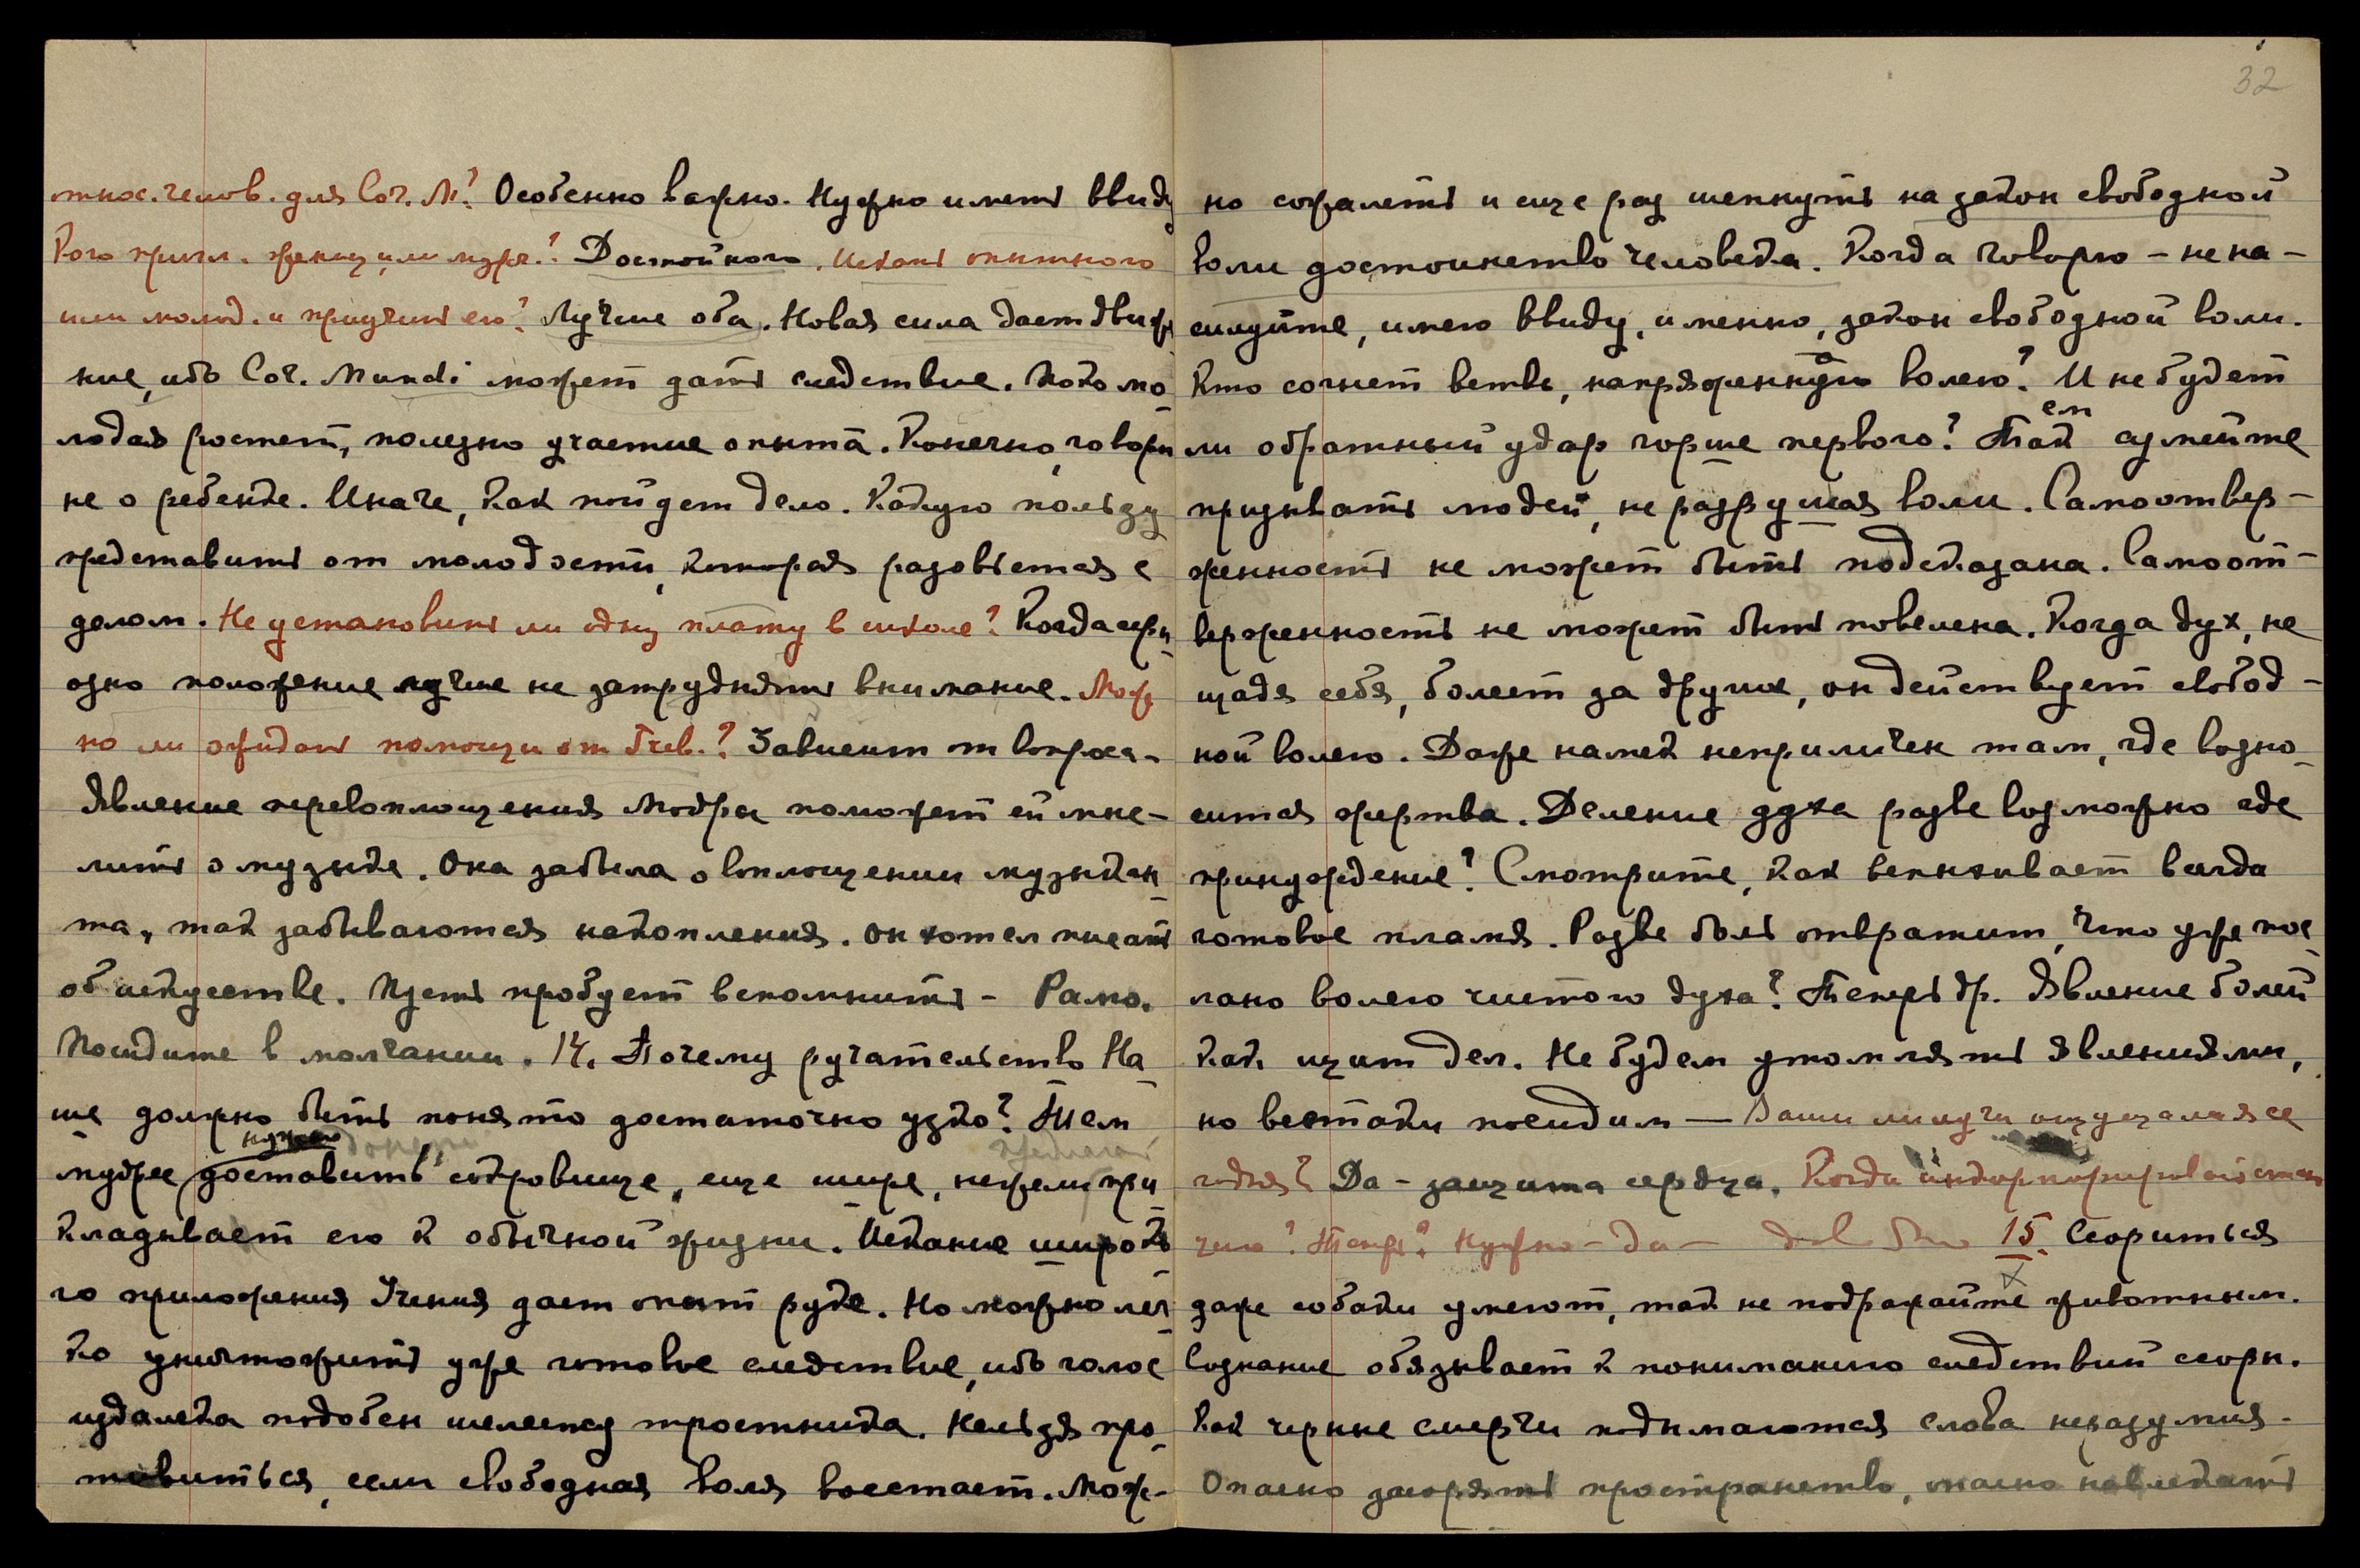 относ. челов. для Cor. M.? Особенно важно. Нужно иметь ввиду
Кого пригл. женщ или мужч.? Достойного. Искать опытного
или молод. и приучить его? Лучше оба. Новая сила дает движе
ние, ибо Cor. Mundi может дать следствие. Пока мо-
лодая ростет, полезно участие опыта. Конечно, говорю
не о ребенке. Иначе, как пойдет дело. Какую пользу
представить от молодости, которая разовьется с
делом. Не установить ли одну плату в школе? Когда серь-
озно положение лучше не затруднять внимание. Мож
но ли ожидать помощи от Гчев.? Зависит от вопроса.
Явление перевоплощения Модра поможет ей мыс-
лить о музыке. Она забыла о воплощении музыкан-
та, так забываются накопления. Он хотел писать
об искусстве. Пусть пробует вспомнить - Рамо.
Посидите в молчании. 14. Почему ручательство На-
ше должно быть понято достаточно узко? Тем
нужно
мудрее доставить сокровище, еще шире, нежели при
кладывает его к обычной жизни. Искание широко-
го приложения Учения дает опыт руке. Но можно лег-
ко уничтожить уже готовое следствие, ибо голос
издалека подобен шелесту тростника. Нельзя про-
тивиться, если свободная воля восстает. Мож-
32
но сожалеть и еще раз шепнуть на закон свободной
воли достоинство человека. Когда говорю - не на-
силуйте, имею ввиду, именно, закон свободной воли.
Кто согнет ветвь, напряженную волею? И не будет
ли обратный удар горше первого? Так сумейте
призывать людей, не разрушая воли. Самоотвер-
женность не может быть подсказана. Самоот-
верженность не может быть повелена. Когда дух, не
щадя себя, болеет за других, он действует свобод-
ной волею. Даже намек неприличен там, где возно-
сится жертва. Деление духа разве возможно где
принуждение? Смотрите, как вспыхивает всегда
готовое пламя. Разве боль отвратит, что уже пос-
лано волею чистого духа? Теперь др. Явление болей
как щит дел. Не будем утомлять явлениями,
но всетаки посидим — Ваши ли лучи ощущалися се
годня? Да - защита сердца. Когда инкорпорировать
чего? Теперь? Нужно - да - 15. Ссориться
даже собаки умеют, так не подражайте животным.
Сознание обязывает к пониманию следствий ссоры.
Как черные смерчи подымаются слова неразумия.
Опасно засорять пространство, опасно навлекать